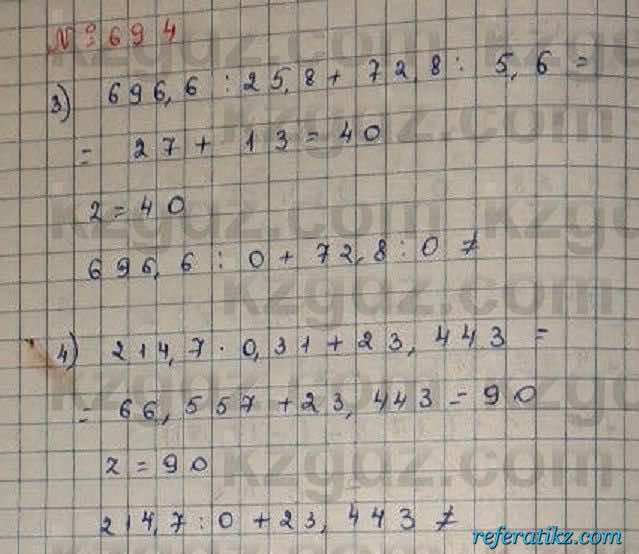 № 694
3) 696,6 : 25,8 + 72,8 : 5,6 =
= 27 + 13 = 40
z = 40
696,6 : 0 + 72,8 : 0 ≠
4) 214,7 · 0,31 + 23,443 =
= 66,557 + 23,443 = 90
z = 90
214,7 : 0 + 23,443 ≠
kzgdz.com
referatikz.com